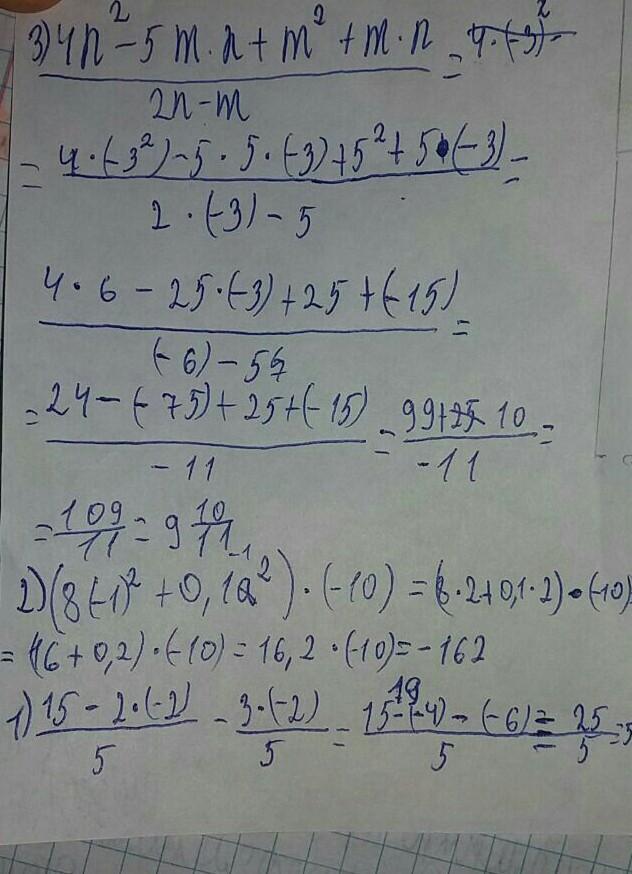 3) (4n² - 5m·n + m² + m·n)/(2n - m) =
= (4·(-3²) - 5·5·(-3) + 5² + 5·(-3))/(2·(-3) - 5) =
(4·6 - 25·(-3) + 25 + (-15))/((-6) - 5) =
= (24 - (-75) + 25 + (-15))/(-11) = (99 + 10)/(-11) =
= 109/11 = 9 10/11
2) (8(-1)² + 0,1a²)·(-10) = (8·2 + 0,1·2)·(-10)
= (16 + 0,2)·(-10) = 16,2·(-10) = -162
1) (15 - 2·(-2))/5 - (3·(-2))/5 = (15 - (-4) - (-6))/5 = 25/5 = 5